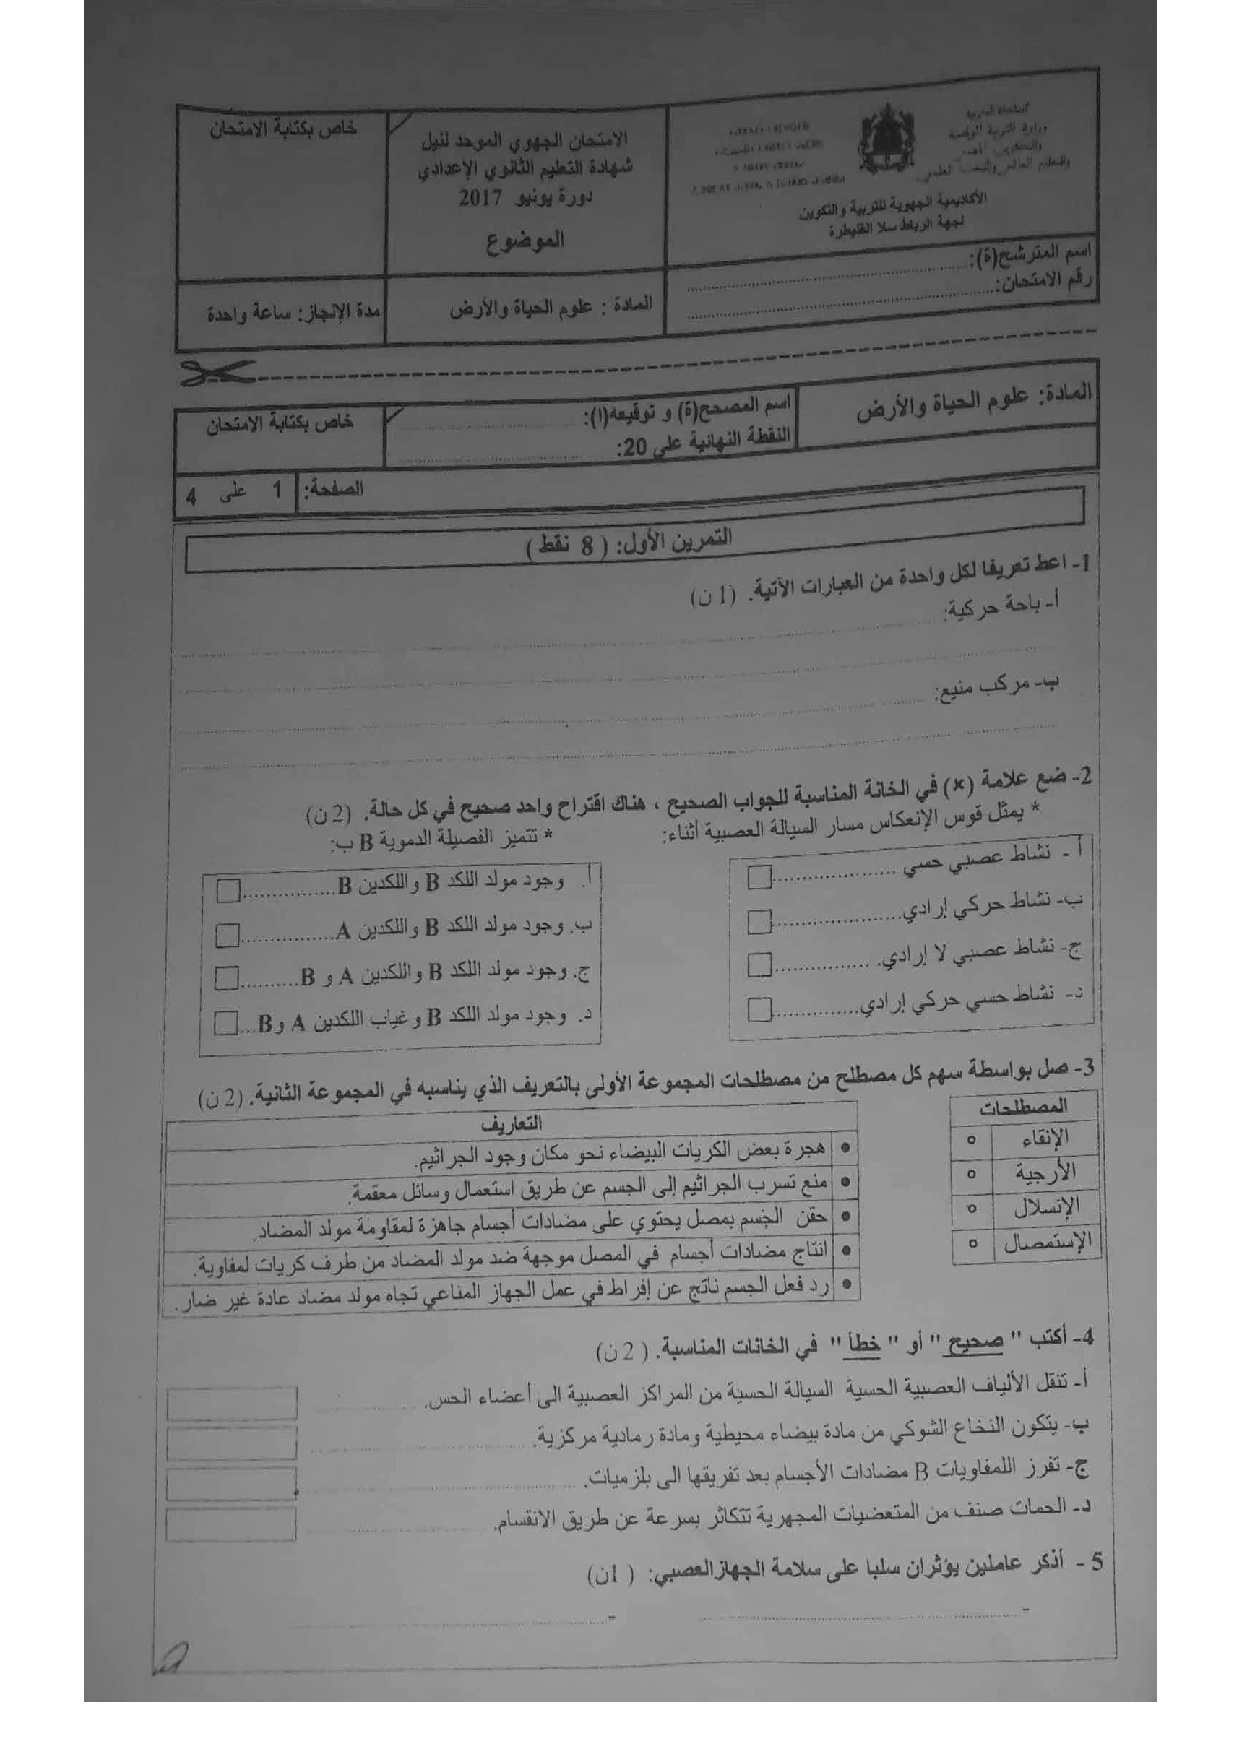 المملكة المغربية
وزارة التربية الوطنية
والتعليم العالي والبحث العلمي
الأكاديمية الجهوية للتربية والتكوين
لجهة الرباط سلا القنيطرة
اسم المترشح(ة):
رقم الامتحان:
الامتحان الجهوي الموحد لنيل
شهادة التعليم الثانوي الإعدادي
دورة يونيو 2017
الموضوع
المادة : علوم الحياة والأرض
خاص بكتابة الامتحان
مدة الإنجاز: ساعة واحدة
المادة: علوم الحياة والأرض
اسم المصحح(ة) و توقيعه(ا):
النقطة النهائية على 20:
خاص بكتابة الامتحان
الصفحة: 1 على 4
التمرين الأول: ( 8 نقط )
1- اعط تعريفا لكل واحدة من العبارات الآتية. (1 ن)
أ- باحة حركية:
ب- مركب منيع:
2- ضع علامة (×) في الخانة المناسبة للجواب الصحيح ، هناك اقتراح واحد صحيح في كل حالة. (2 ن)
* يمثل قوس الإنعكاس مسار السيالة العصبية أثناء:
أ - نشاط عصبي حسي
ب- نشاط حركي إرادي
ج- نشاط عصبي لا إرادي.
د- نشاط حسي حركي إرادي
* تتميز الفصيلة الدموية B ب:
أ. وجود مولد اللكد B واللكدين B
ب. وجود مولد اللكد B واللكدين A
ج. وجود مولد اللكد B واللكدين A و B
د. وجود مولد اللكد B وغياب اللكدين A وB
3- صل بواسطة سهم كل مصطلح من مصطلحات المجموعة الأولى بالتعريف الذي يناسبه في المجموعة الثانية. (2 ن)
المصطلحات
الإنقاء
الأرجية
الإنسلال
الإستمصال
التعاريف
هجرة بعض الكريات البيضاء نحو مكان وجود الجراثيم.
منع تسرب الجراثيم إلى الجسم عن طريق استعمال وسائل معقمة.
حقن الجسم بمصل يحتوي على مضادات أجسام جاهزة لمقاومة مولد المضاد.
انتاج مضادات أجسام في المصل موجهة ضد مولد المضاد من طرف كريات لمفاوية.
رد فعل الجسم ناتج عن إفراط في عمل الجهاز المناعي تجاه مولد مضاد عادة غير ضار.
4- أكتب " صحيح " أو " خطأ " في الخانات المناسبة. ( 2 ن)
أ- تنقل الألياف العصبية الحسية السيالة الحسية من المراكز العصبية الى أعضاء الحس.
ب- يتكون النخاع الشوكي من مادة بيضاء محيطية ومادة رمادية مركزية.
ج- تفرز اللمفاويات B مضادات الأجسام بعد تفريقها الى بلزميات.
د- الحمات صنف من المتعضيات المجهرية تتكاثر بسرعة عن طريق الانقسام.
5 - أذكر عاملين يؤثران سلبا على سلامة الجهاز العصبي: ( 1ن)
- -